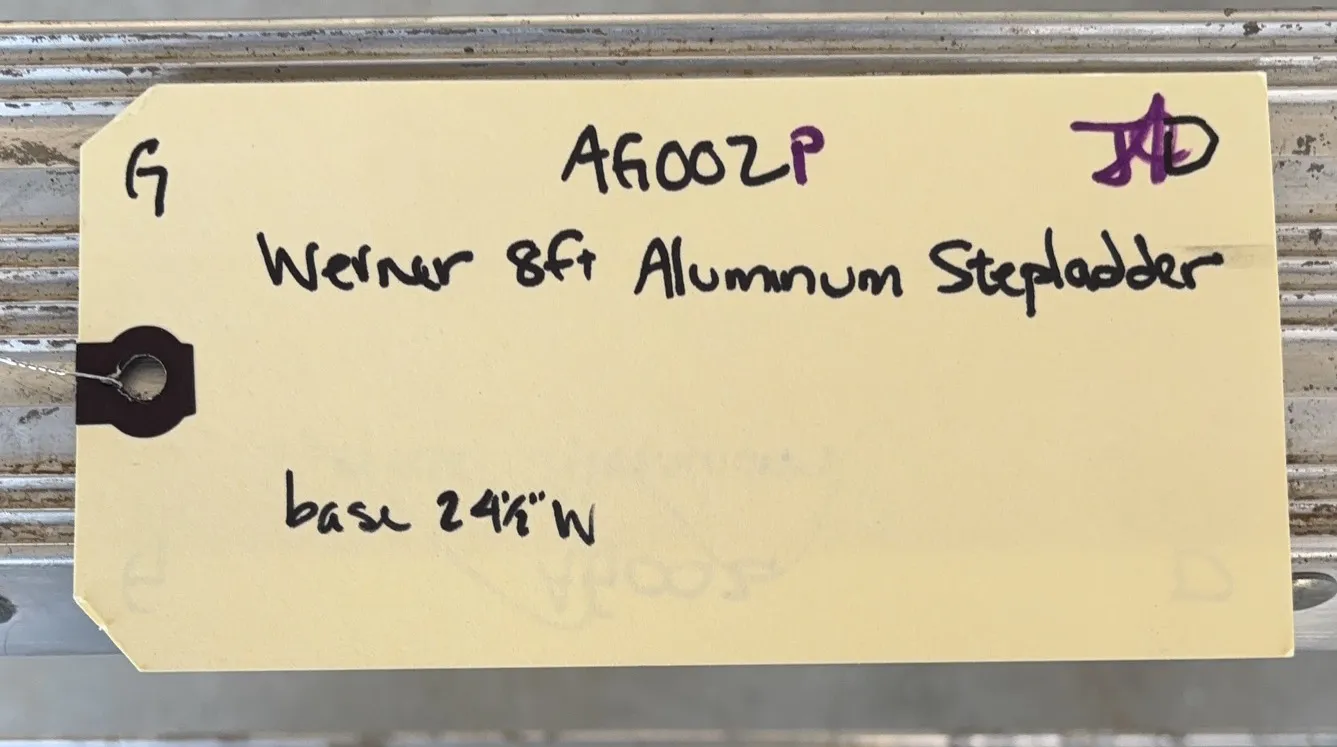 G AG002P D
Werner 8ft Aluminum Stepladder
base 24½" W